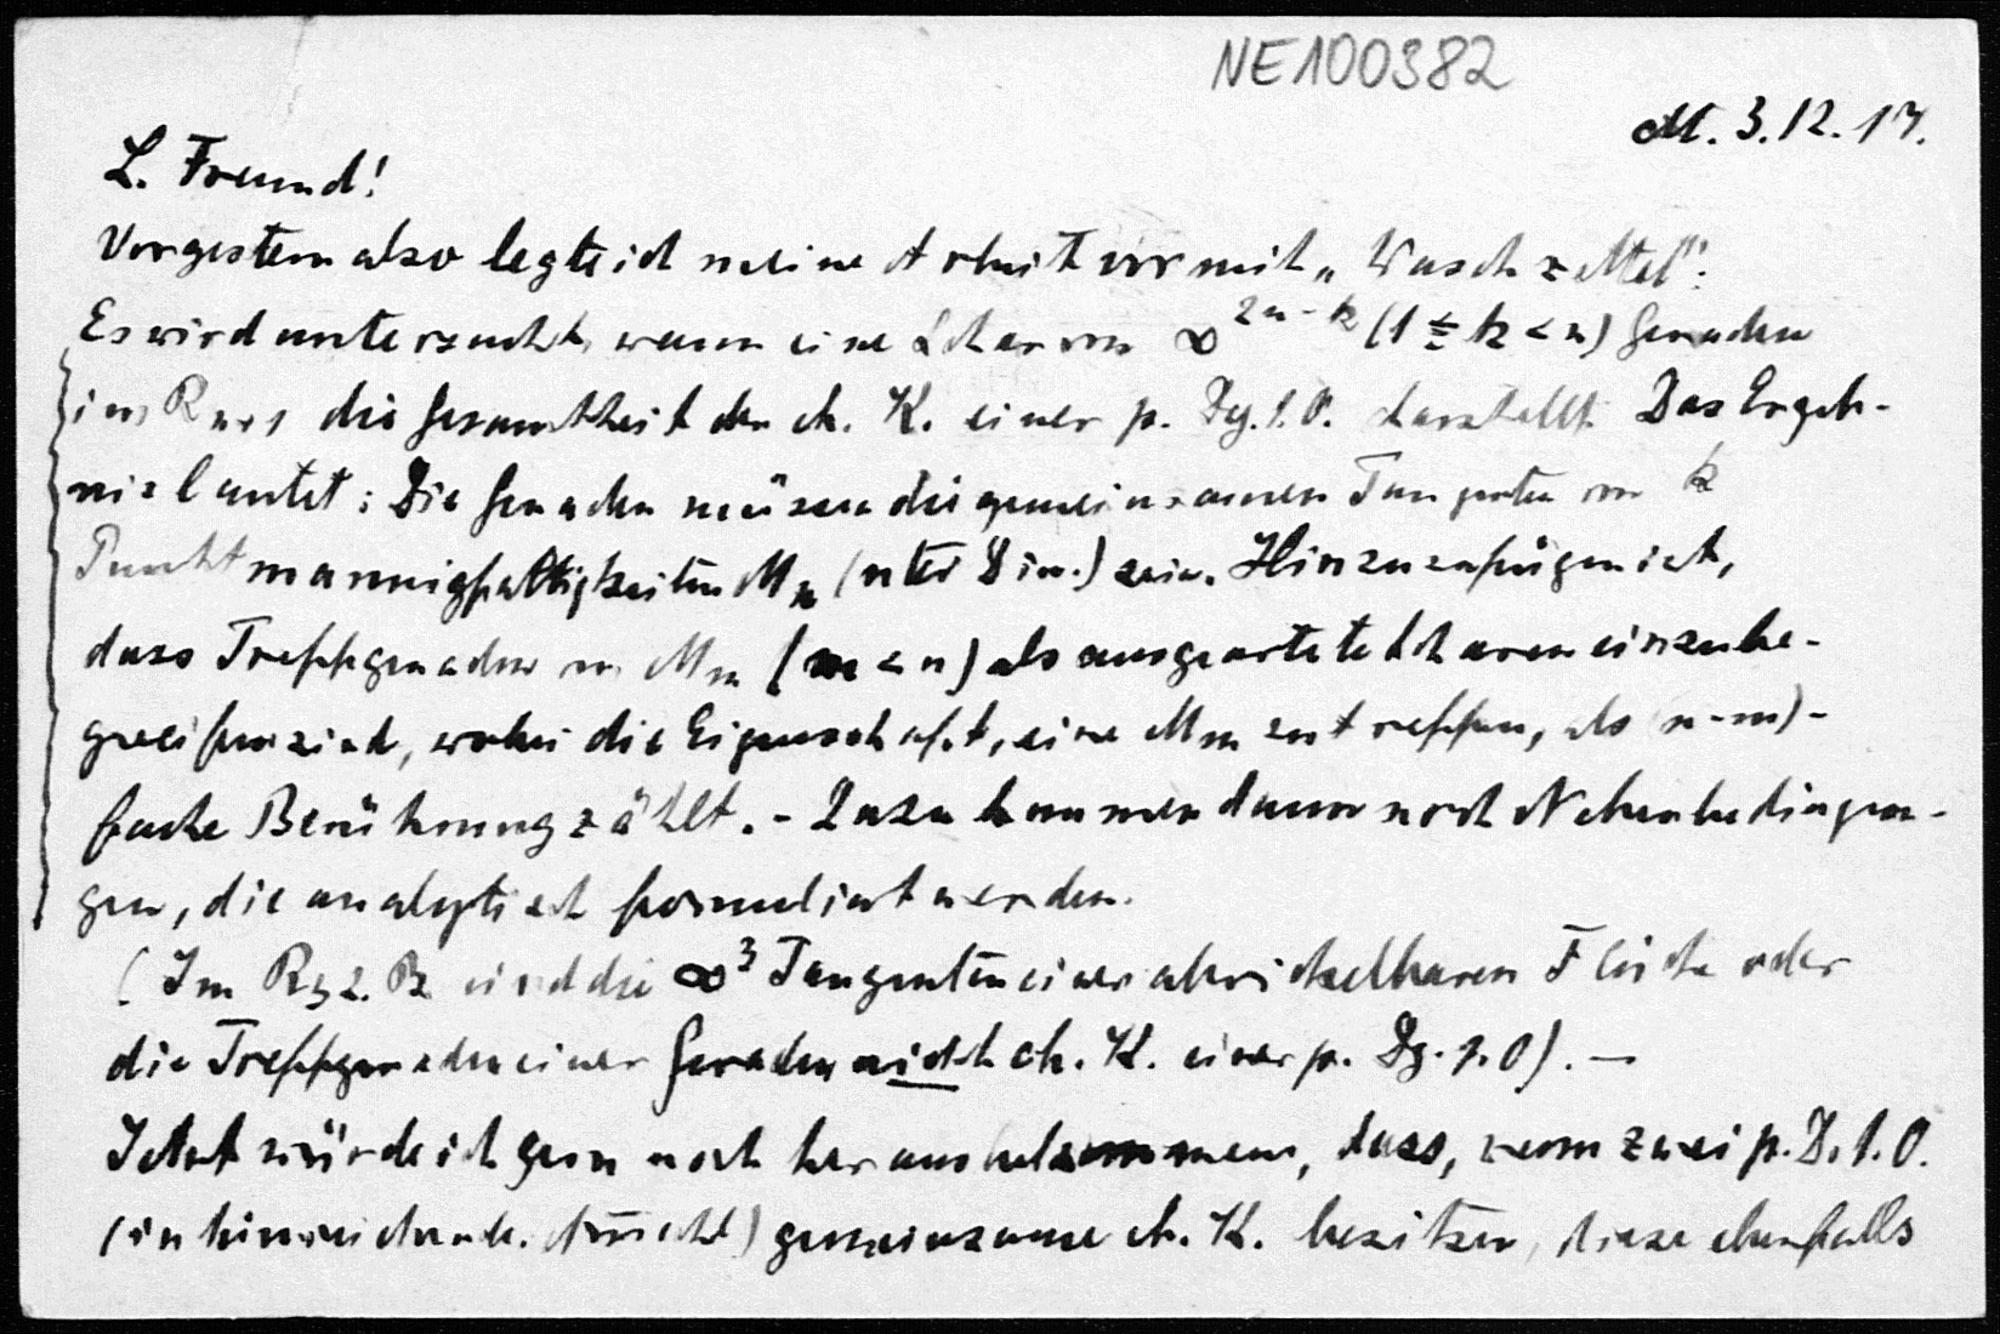 NE100382
M. 3.12.17.
L. Freund!
Vorgestern also legte ich meine Arbeit vor mit „Waschzettel":
Es wird untersucht, wann eine Schar von ∞^{2n-k} (1 ≦ k < n) Geraden
im R_{n+1} die Gesamtheit der ch. K. einer p. Dg. 1. O. darstellt. Das Ergeb-
nis lautet: Die Geraden müssen die gemeinsamen Tangenten von k
Punktmannigfaltigkeiten M_n (nter Dim.) sein. Hinzuzufügen ist,
dass Treffgeraden von M_m (m < n) als ausgeartete Scharen einzube-
greifen sind, wobei die Eigenschaft, eine M_m zu treffen, als (n-m)-
fache Berührung zählt. - Dazu kommen dann noch Nebenbedingun-
gen, die analytisch formuliert werden.
(Im R_3 z. B. sind die ∞^3 Tangenten einer abwickelbaren Fläche oder
die Treffgeraden einer Geraden nicht ch. K. einer p. Dg. 1. O). —
Jetzt würde ich gern noch herausbekommen, dass, wenn zwei p. D. 1. O.
(in hinreichende. Anzahl) gemeinsame ch. K. besitzen, diese ebenfalls